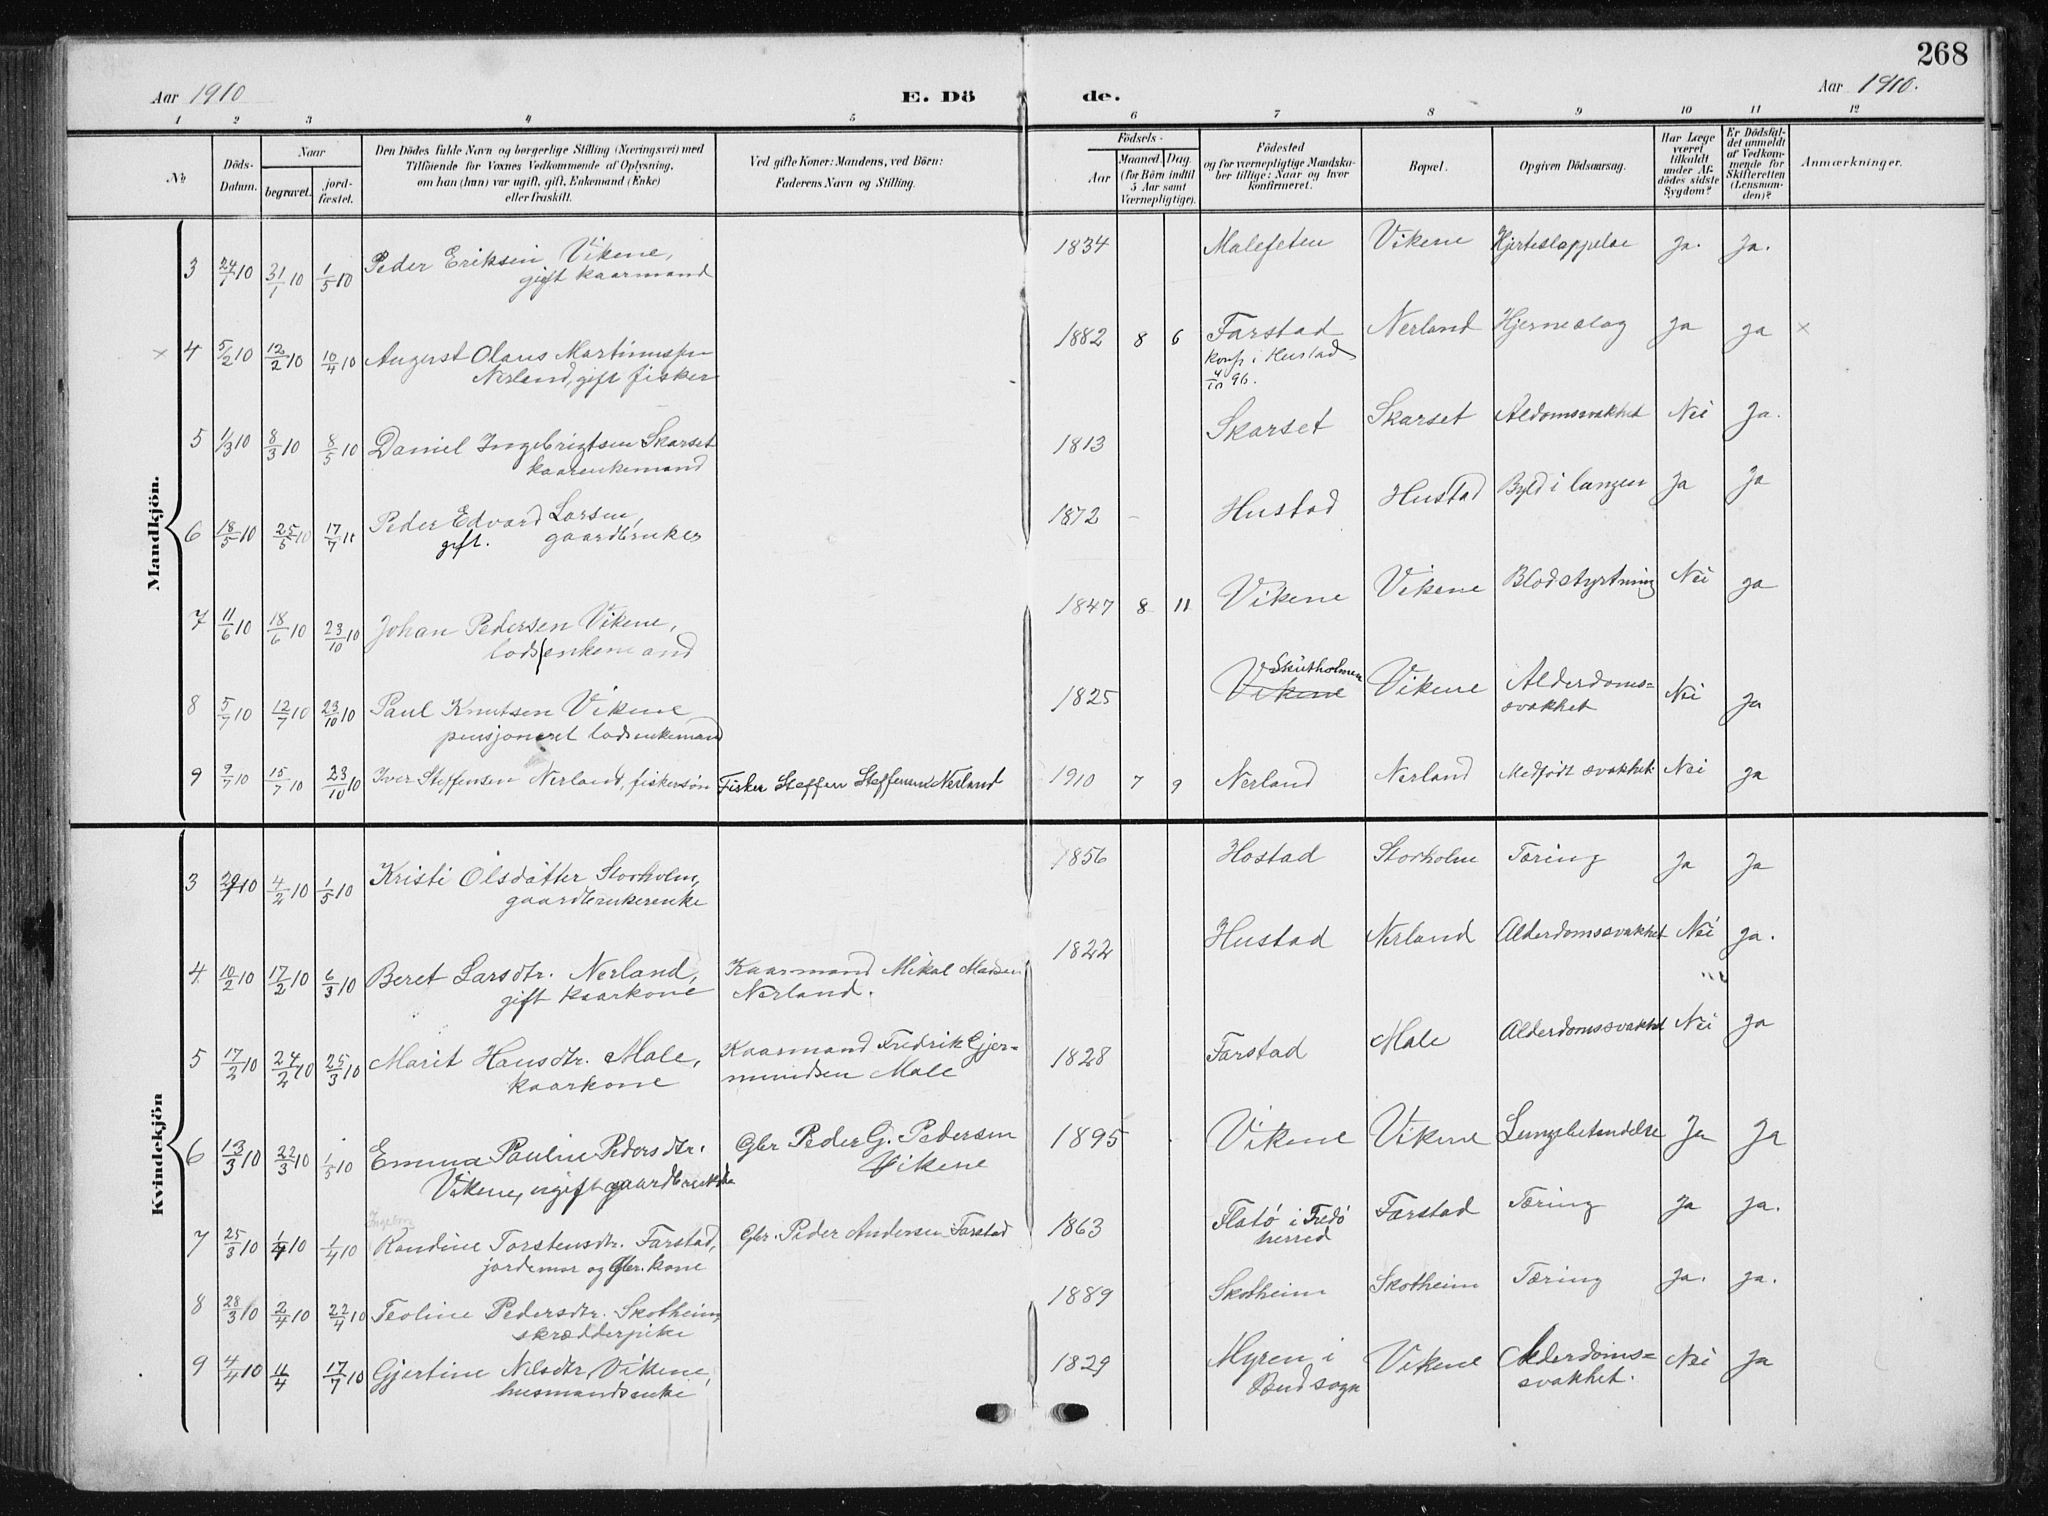 268
Aar 1910
E. Dö de.
Aar 1910.
1 2 3 4 5 6 7 8 9 10 11 12
No
Döds-Datum.
Naar
begravet.
jord-fæstet.
Den Dödes fulde Navn og borgerlige Stilling (Næringsvei) med
Tilföiende for Voxnes Vedkommende af Oplysning,
om han (hun) var ugift, gift, Enkemand (Enke)
eller fraskilt.
Ved gifte Koner: Mandens, ved Börn:
Faderens Navn og Stilling.
Födsels-
Aar
Maaned. Dag.
(for Börn indtil
5 Aar samt
Værnepligtige).
Födested
og for værnepligtige Mandska-
ber tillige: Naar og hvor
konfirmeret.
Bopæl.
Opgiven Dödsaarsag.
Har Læge
været
tilkaldt
under Af-
dödes sidste
Sygdom?
Er Dödsfal-
det anmeldt
af Vedkom-
mende for
Skifteretten
(Lensman-
den)?
Anmærkninger.
Mandkjön.
3 24/1 10 31/1 10 1/5 10 Peder Eriksen Vikene, 1834 Malefeten Vikene Hjerteslappelse Ja. Ja.
gift kaarmand
× 4 5/2 10 12/2 10 10/4 10 August Olaus Martinussen 1882 8 6 Farstad Nerland Hjerneslag Ja Ja ×
Nerland, gift fisker konf. i Hustad
4/10 96.
5 1/3 10 8/3 10 8/5 10 Daniel Ingebrigtsen Skarset 1813 Skarset Skarset Aldomssvakhet Nei Ja.
kaarenkemand
6 18/5 10 25/5 10 17/7 11 Peder Edvard Larsen, 1872 - Hustad Hustad Byld i lungen Ja Ja
gift. gaardbruker
7 11/6 10 18/6 10 23/10 10 Johan Pedersen Vikene, 1847 8 11 Vikene Vikene Blodstyrtning Nei Ja
lods enkemand
8 5/7 10 12/7 10 23/10 10 Paul Knutsen Vikene 1825 Skutholmen Vikene Vikene Alderdoms=
pensjoneret lodsenkemand svakhet Nei Ja
9 9/7 10 15/7 10 23/10 10 Iver Steffensen Nerland, fiskersøn Fisker Steffen Steffensen Nerland 1910 7 9 Nerland Nerland Medfødt svakhet. Nei Ja
Kvindekjön
3 29/1 10 4/2 10 1/5 10 Kristi Olsdatter Storholm, 1856 Hostad Storholm Tæring Ja Ja
gaardbrukerenke
4 10/2 10 17/2 10 6/3 10 Beret Larsdtr. Nerland, Kaarmand Mikal Madsen 1822 Hustad Nerland Alderdomssvakhet Nei Ja.
gift kaarkone Nerland.
5 17/2 10 24/2 10 25/3 10 Marit Hansdtr. Male, Kaarmand Fredrik Gjer= 1828 Farstad Male Alderdomssvakhet Nei Ja
kaarkone mundsen Male
6 13/3 10 22/3 10 1/5 10 Emma Pauline Pedersdtr. Gbr Peder G. Pedersen 1895 Vikene Vikene Lungebetendelse Ja Ja
Vikene, ugift Vikene
Ingeborg
7 25/3 10 1/4 10 1/4 10 Randine Torstensdtr. Farstad, Gbr. Peder Andersen Farstad 1863 Flatö i Fredö Farstad Tæring Ja Ja.
jordemor og Gbr. kone herred
8 28/3 10 2/4 10 22/4 10 Teoline Pedersdtr. Skotheim, 1889 Skotheim Skotheim Tæring Ja. Ja.
skrædderpike
9 4/4 10 11/4 17/7 10 Gjertine Nilsdtr. Vikene, 1829 Myren i Vikene Alderdoms= Nei Ja
husmandsenke Bud sogn svakhet.